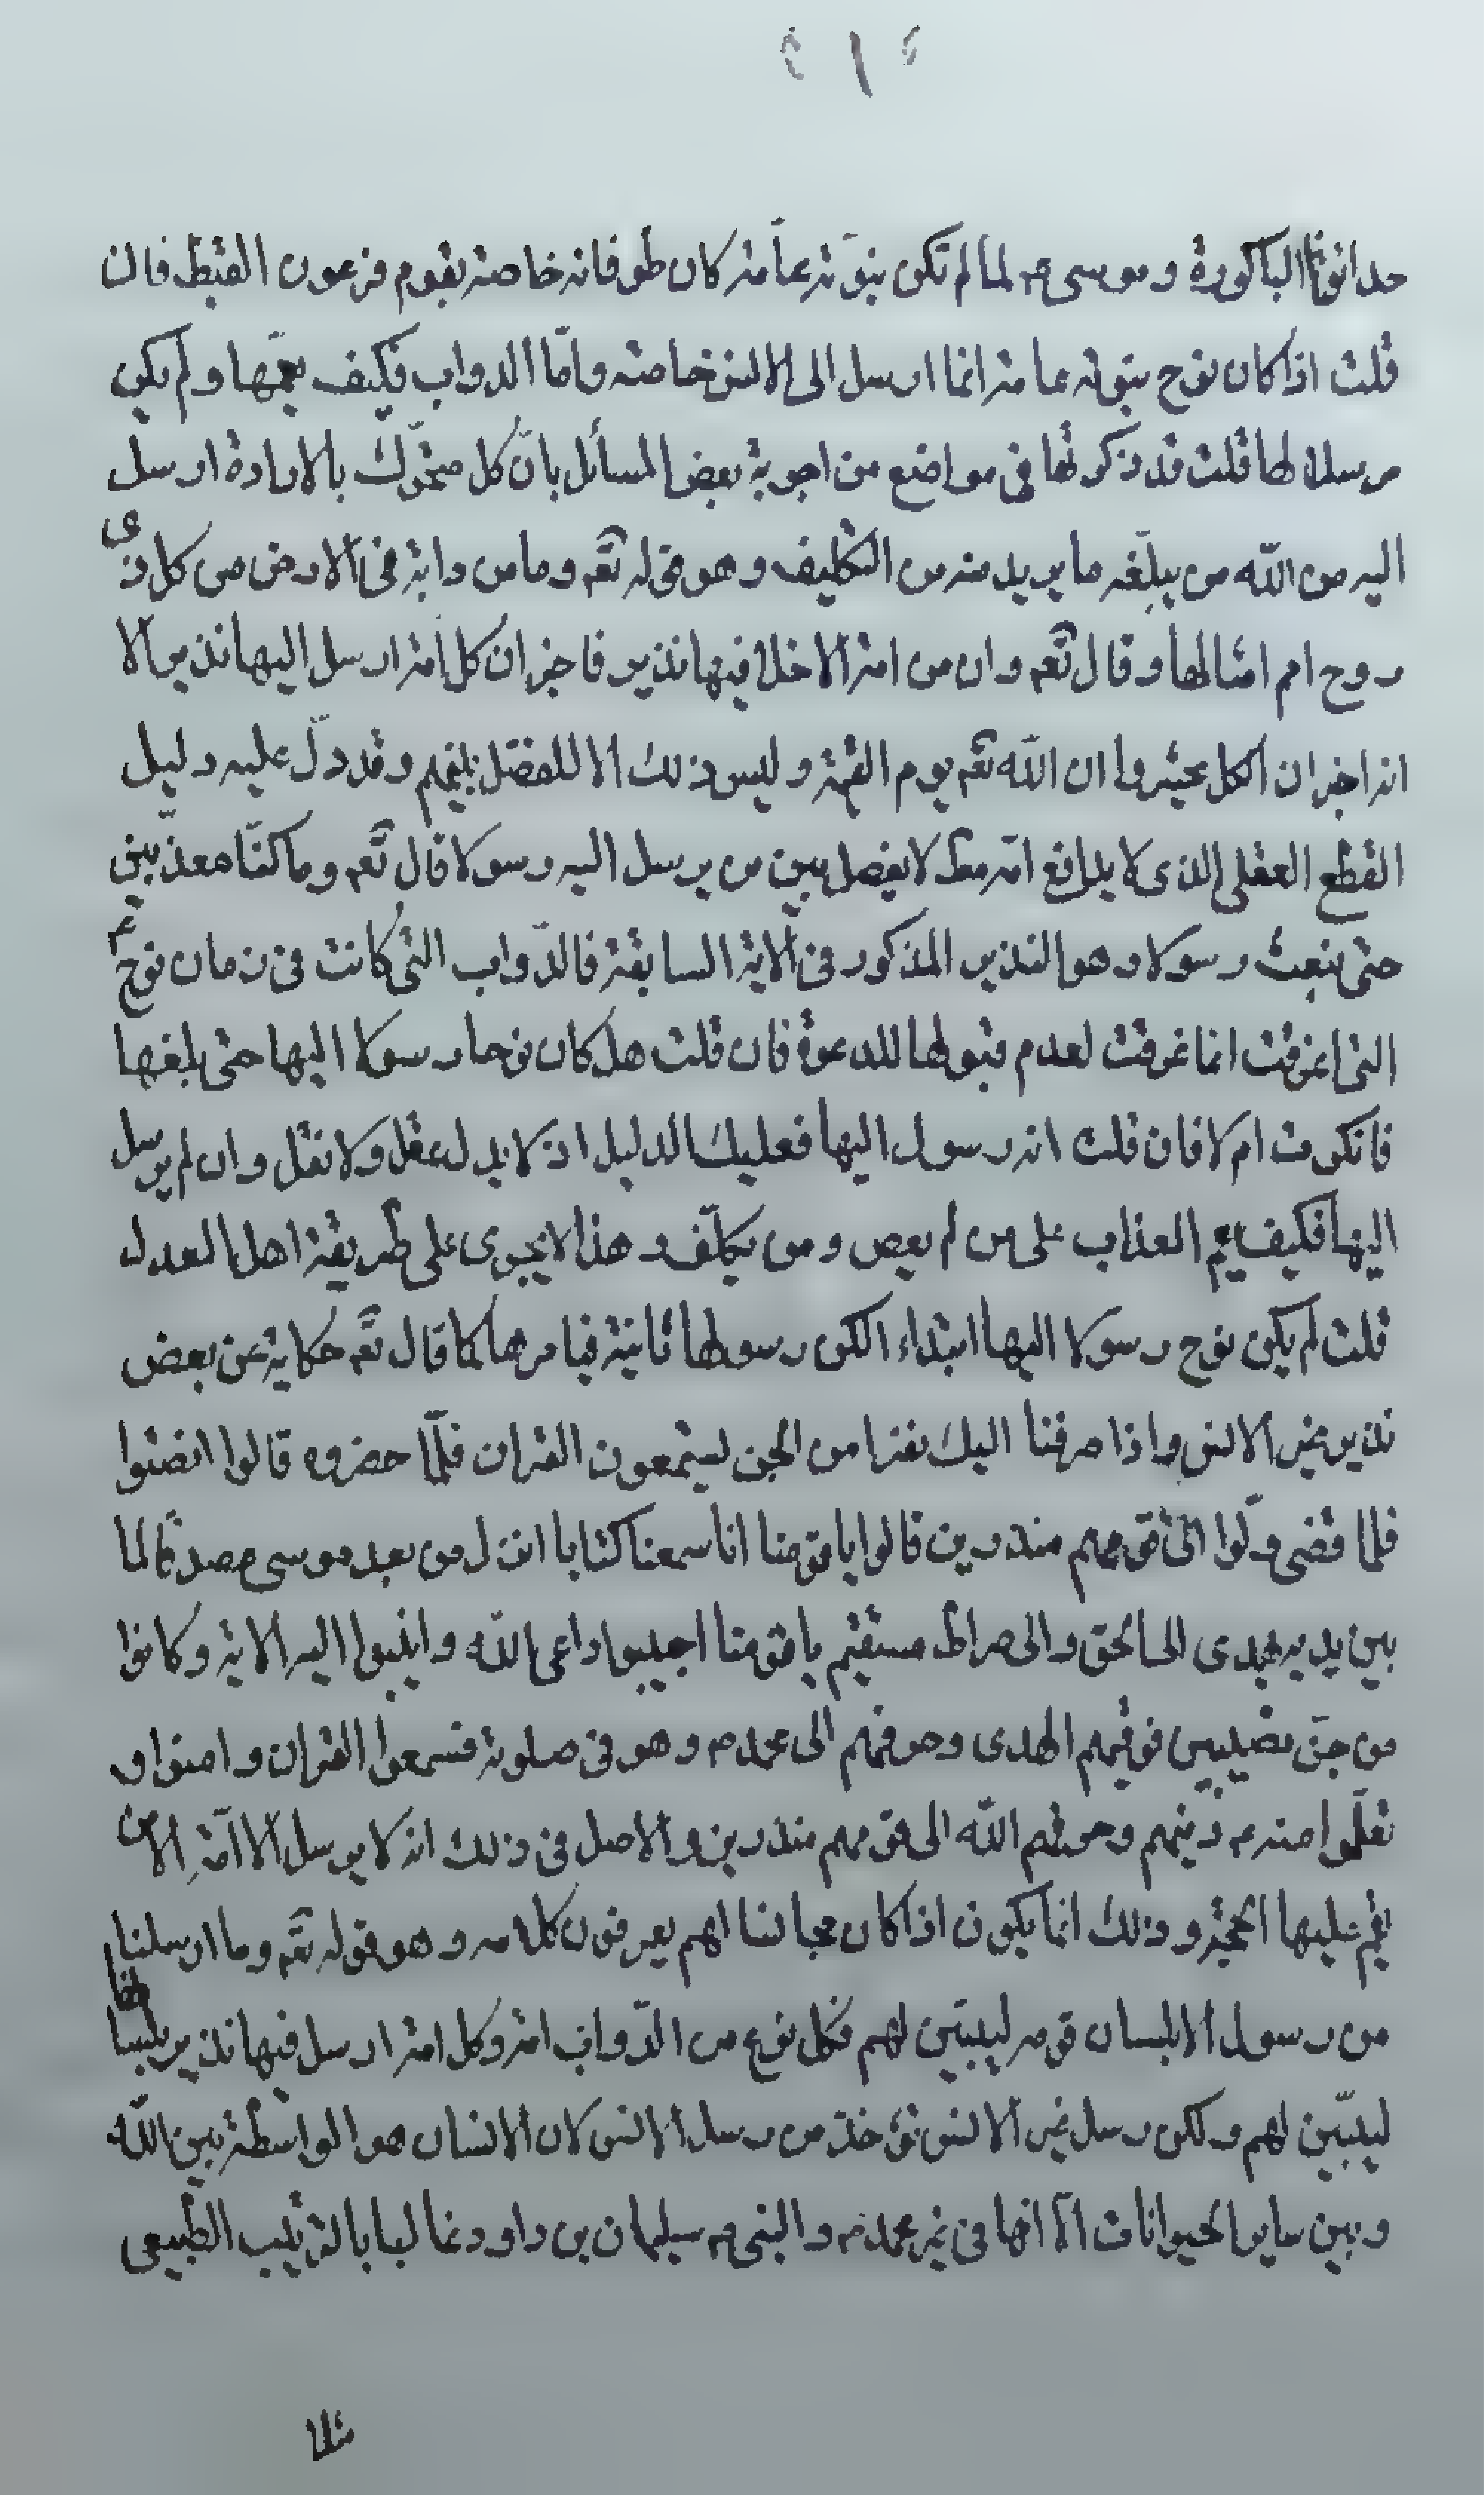 حدائقنا الباكورة وموسى ع لما لم تكن نبوّته عامّة كان طوفانه خاصة بقوم فرعون القبط فان
قلت اذا كان نوح نبوته عامة انما ارسل الى الانس خاصة وامّا الدواب فكيف يعمّها ولم يكن
مرسلا لها قلت قد ذكرتها في مواضع من اجوبة بعض المسائل بانّ كل متحرّك بالارادة ارسل
اليه من اللّه من يبلّغه ما يريد منه من التكليف وهو قوله تعٓه وما من دابة في الارض من كل ذى
روح امم امثالها وقال تعٓه وان من امة الا خلا فيها نذير فاخبر ان كل امة ارسل اليها نذير الا
انه اخبر ان الكل يحشروا ان اللّه تعٓه يوم القيمة وليس ذلك الا للفصل بينهم وقد دلّ عليه دليل
القطع العقلى الذى لا يدافع انه تعٓه لا يفصل بين من يرسل اليه رسولا قال تعٓه وما كنّا معذّبين
حتى نبعث رسولا وهو النذير المذكور فى الاية السابقة فالدّواب التى كانت فى زمان نوح ع
التى اغرقت انما غرقت لعدم قبولها للدعوة فان قلت هل كان نوحا رسولا اليها حتى بلغها
فانكرت ام لا فان قلت انه رسول اليها فعليك الدليل اذ لا يدل عقل ولا نقل وان لم يرسل
اليها فكيف يعم العذاب على من لم يعص ومن يكلّف وهذا لا يجرى على طريقة اهل العدل
قلت لم يكن نوح رسولا اليها ابتداء الكن رسولها ثانية فيامرها كما قال تعٓه حكاية عن بعض
نذير غير الانس واذا صرفنا اليك نفرا من الجن يستمعون القران فلمّا حضروه قالوا انصتوا
فلما قضى ولّوا الى قومهم منذرين قالوا يا قومنا انا سمعنا كتابا انزل من بعد موسى مصدقا لما
بين يديه يهدى الى الحق والى صراط مستقيم يا قومنا اجيبوا داعى اللّه وانيبوا اليه الاية وكانوا
من جنّ نصيبين فوفقهم الهدى وصرفهم الى محمد ص وهو فى صلوته فسمعوا القران وامنوا و
تعلّموا منه ص دينهم وصرفهم اللّه الى قومهم منذرين والاصل فى ذلك انه لا يرسل الا امّة الا من
يقم عليها الحجة وذلك انما يكون اذا كان مجانسا لهم يعرفون كلامه وهو قوله تعٓه وما ارسلنا
من رسول الا بلسان قومه ليبيّن لهم فكل نوع من الدّواب امة وكل امة ارسل فيها نذير بلسانها
ليبيّن لهم ولكن رسل غير الانس تؤخذ من رسل الانس لان الانسان هو الواسطة بين اللّه
وبين ساير الحيوانات الّا انها فى غير محمد ص والنبى ص سليمان بن داود غالبا بالترتيب الطبيعى
مثلا